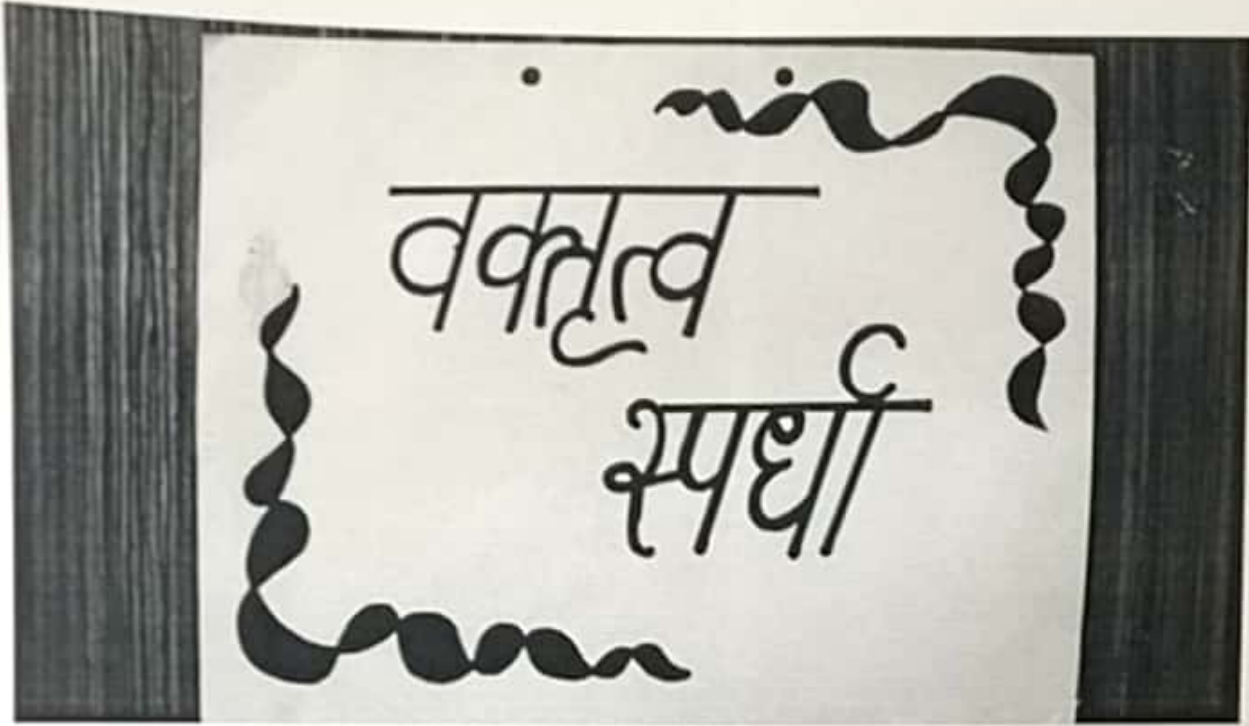 वक्तृत्व
स्पर्धा